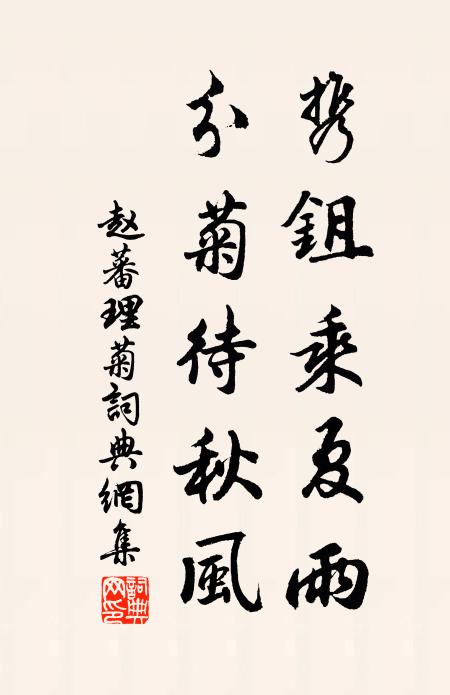 携鉏乘夏雨
分菊待秋風
赵蕃理菊詞典網集
詞典网印